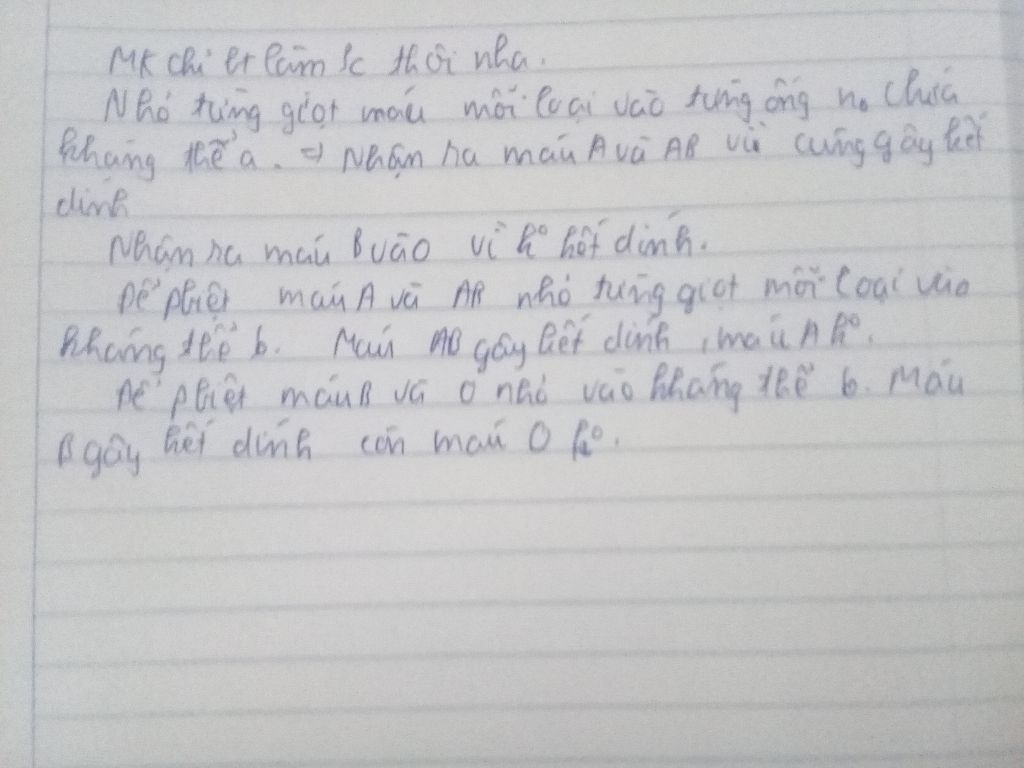 MK chỉ bt làm 1c thôi nha.
Nhỏ từng giọt máu mỗi loại vào từng ống n₀ chứa
kháng thể a. => Nhận ra máu A và AB vì cùng gây kết
dính
Nhận ra máu B và O vì k° kết dính.
Để pbiệt máu A và AB nhỏ từng giọt mỗi loại vào
kháng thể b. Máu AB gây kết dính, máu A k°.
Để pbiệt máu B và O nhỏ vào kháng thể b. Máu
B gây kết dính còn máu O k°.